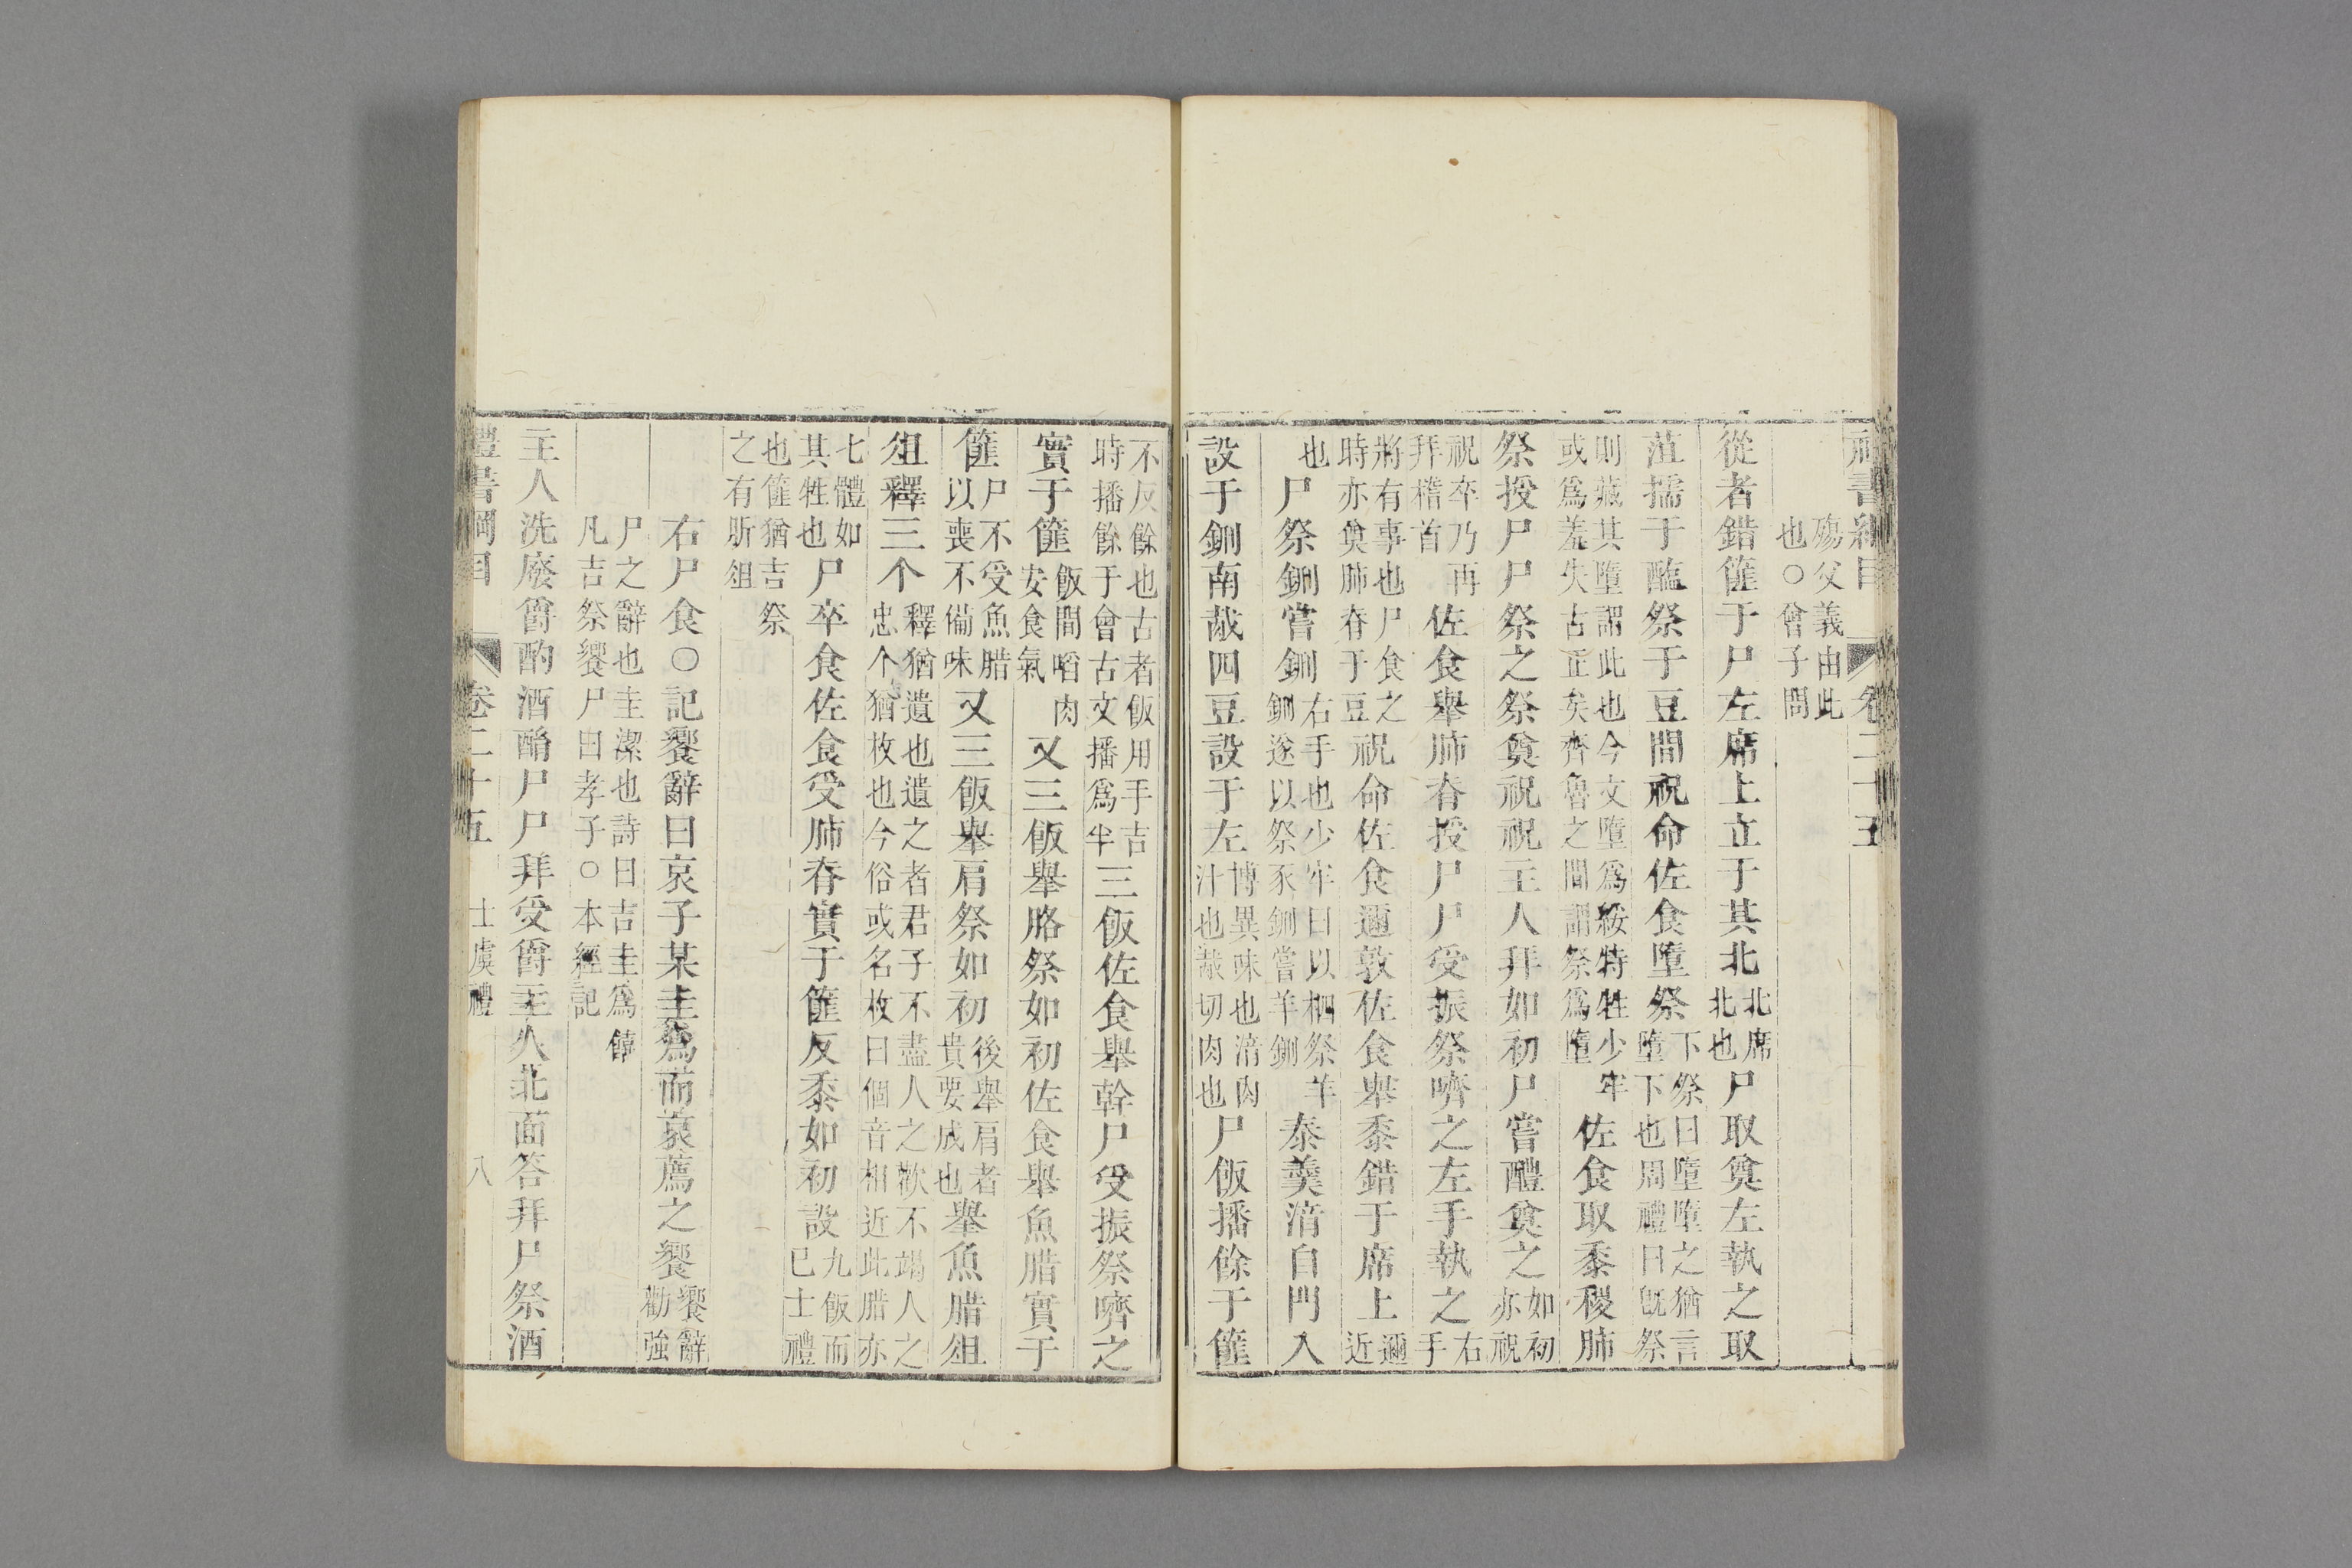 禮書綱目 卷二十五
殤父義由此
也○曾子問
從者錯篚于尸左席上立于其北北席北也尸取奠左執之取
菹擩于醢祭于豆間祝命佐食墮祭下祭曰墮墮之猶言墮下也周禮曰旣祭
則藏其墮謂此也今文墮爲綏特牲少牢或爲羞失古正矣齊魯之間謂祭爲墮佐食取黍稷肺
祭授尸尸祭之祭奠祝祝主人拜如初尸嘗醴奠之如初亦祝
祝卒乃再拜稽首佐食舉肺脊授尸尸受振祭嚌之左手執之右手
將有事也尸食之時亦奠肺脊于豆祝命佐食邇敦佐食舉黍錯于席上邇近
也尸祭鉶嘗鉶右手也少牢曰以柶祭羊鉶遂以祭豕鉶嘗羊鉶泰羹湇自門入
設于鉶南胾四豆設于左博異味也湇肉汁也胾切肉也尸飯播餘于篚
不反餘也古者飯用手吉時播餘于會古文播爲半三飯佐食舉幹尸受振祭嚌之
實于篚飯間啗肉安食氣又三飯舉胳祭如初佐食舉魚腊實于
篚尸不受魚腊以喪不備味又三飯舉肩祭如初後舉肩者貴要成也舉魚腊俎
俎釋三个釋猶遺也遺之者君子不盡人之歡不竭人之忠个猶枚也今俗或名枚曰個音相近此腊亦
七體如其牲也尸卒食佐食受肺脊實于篚反黍如初設九飯而已士禮
也篚猶吉祭之有肵俎
右尸食○記饗辭曰哀子某圭爲而哀薦之饗饗辭勸強
尸之辭也圭潔也詩曰吉圭爲饎
凡吉祭饗尸曰孝子○本經記
主人洗廢爵酌酒酳尸尸拜受爵主人北面答拜尸祭酒
禮書綱目 卷二十五 士虞禮 八